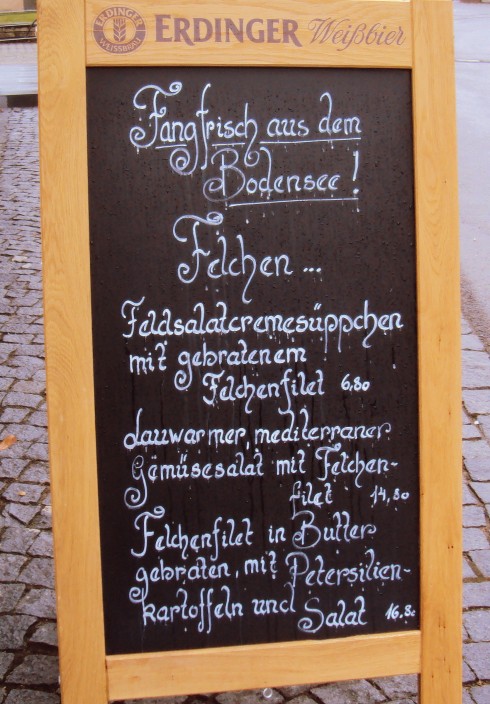 ERDINGER Weißbier
ERDINGER
WEISSBRÄU
Fangfrisch aus dem
Bodensee!
Felchen ...
Feldsalatcremesüppchen
mit gebratenem
Felchenfilet 6,80
Lauwarmer, mediterraner
Gemüsesalat mit Felchen-
filet 14,80
Felchenfilet in Butter
gebraten, mit Petersilien-
kartoffeln und Salat 16.80